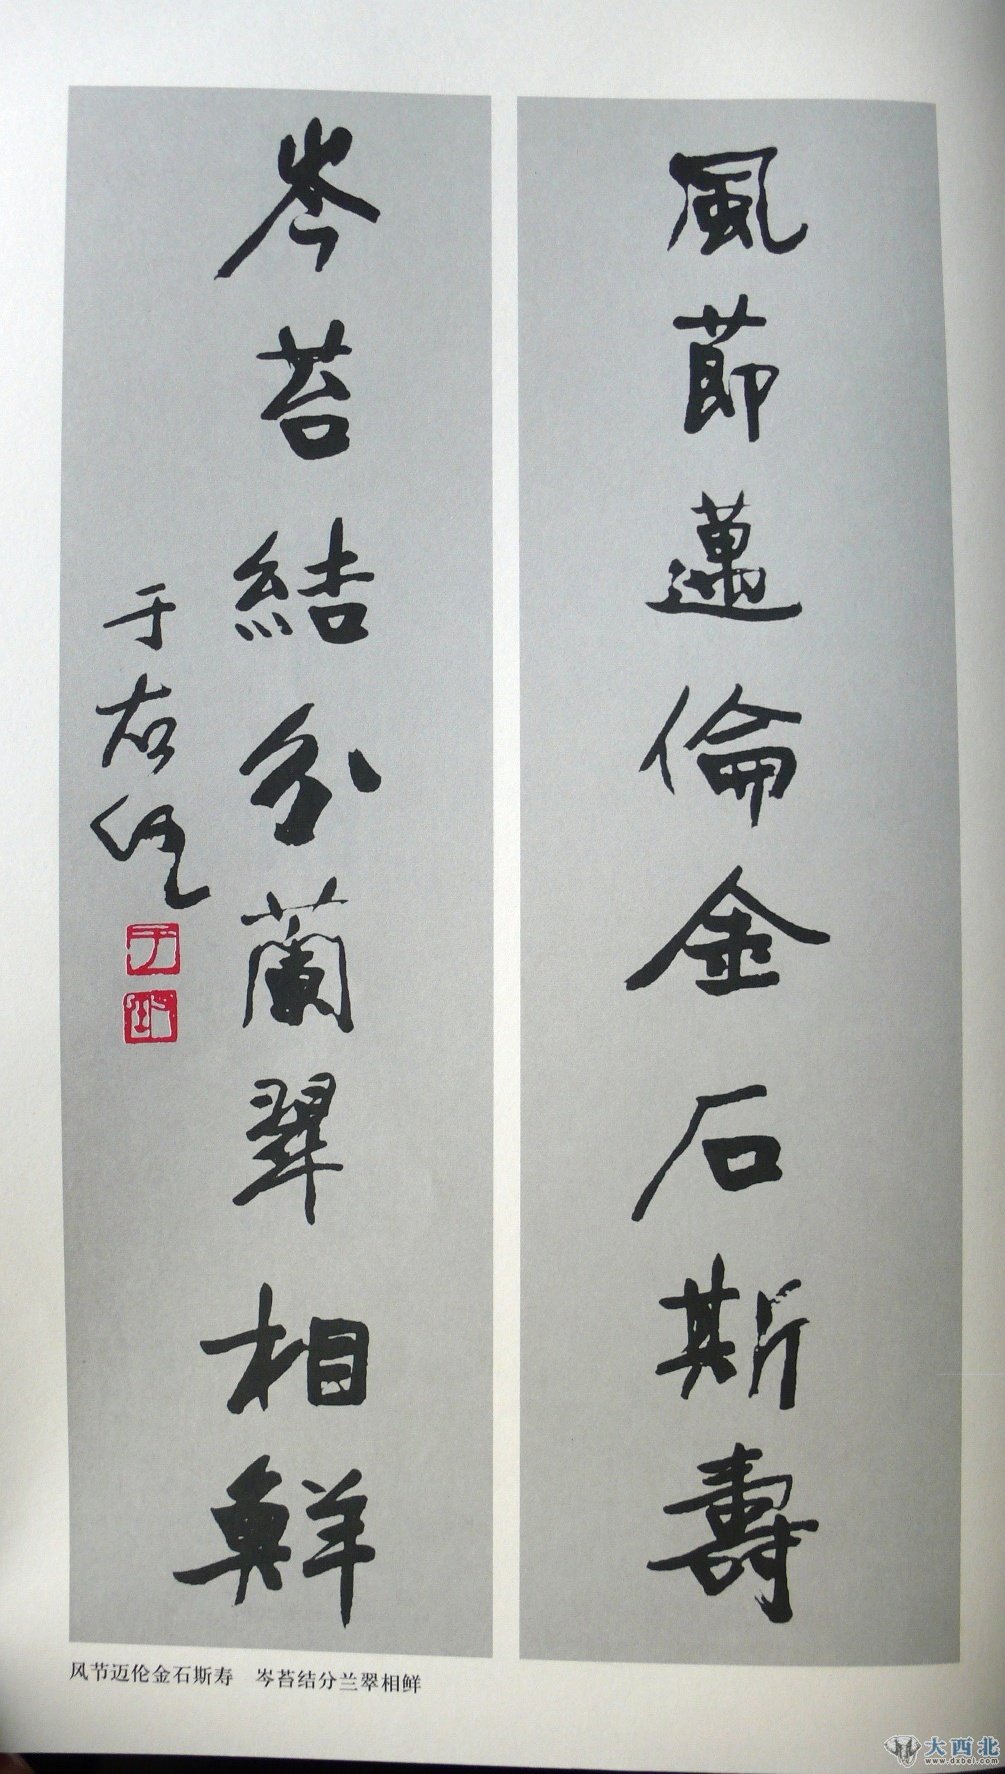 風節邁倫金石斯壽
岑苔結分蘭翠相鮮
于右任
风节迈伦金石斯寿　岑苔结分兰翠相鲜
大西北
www.dxbei.com